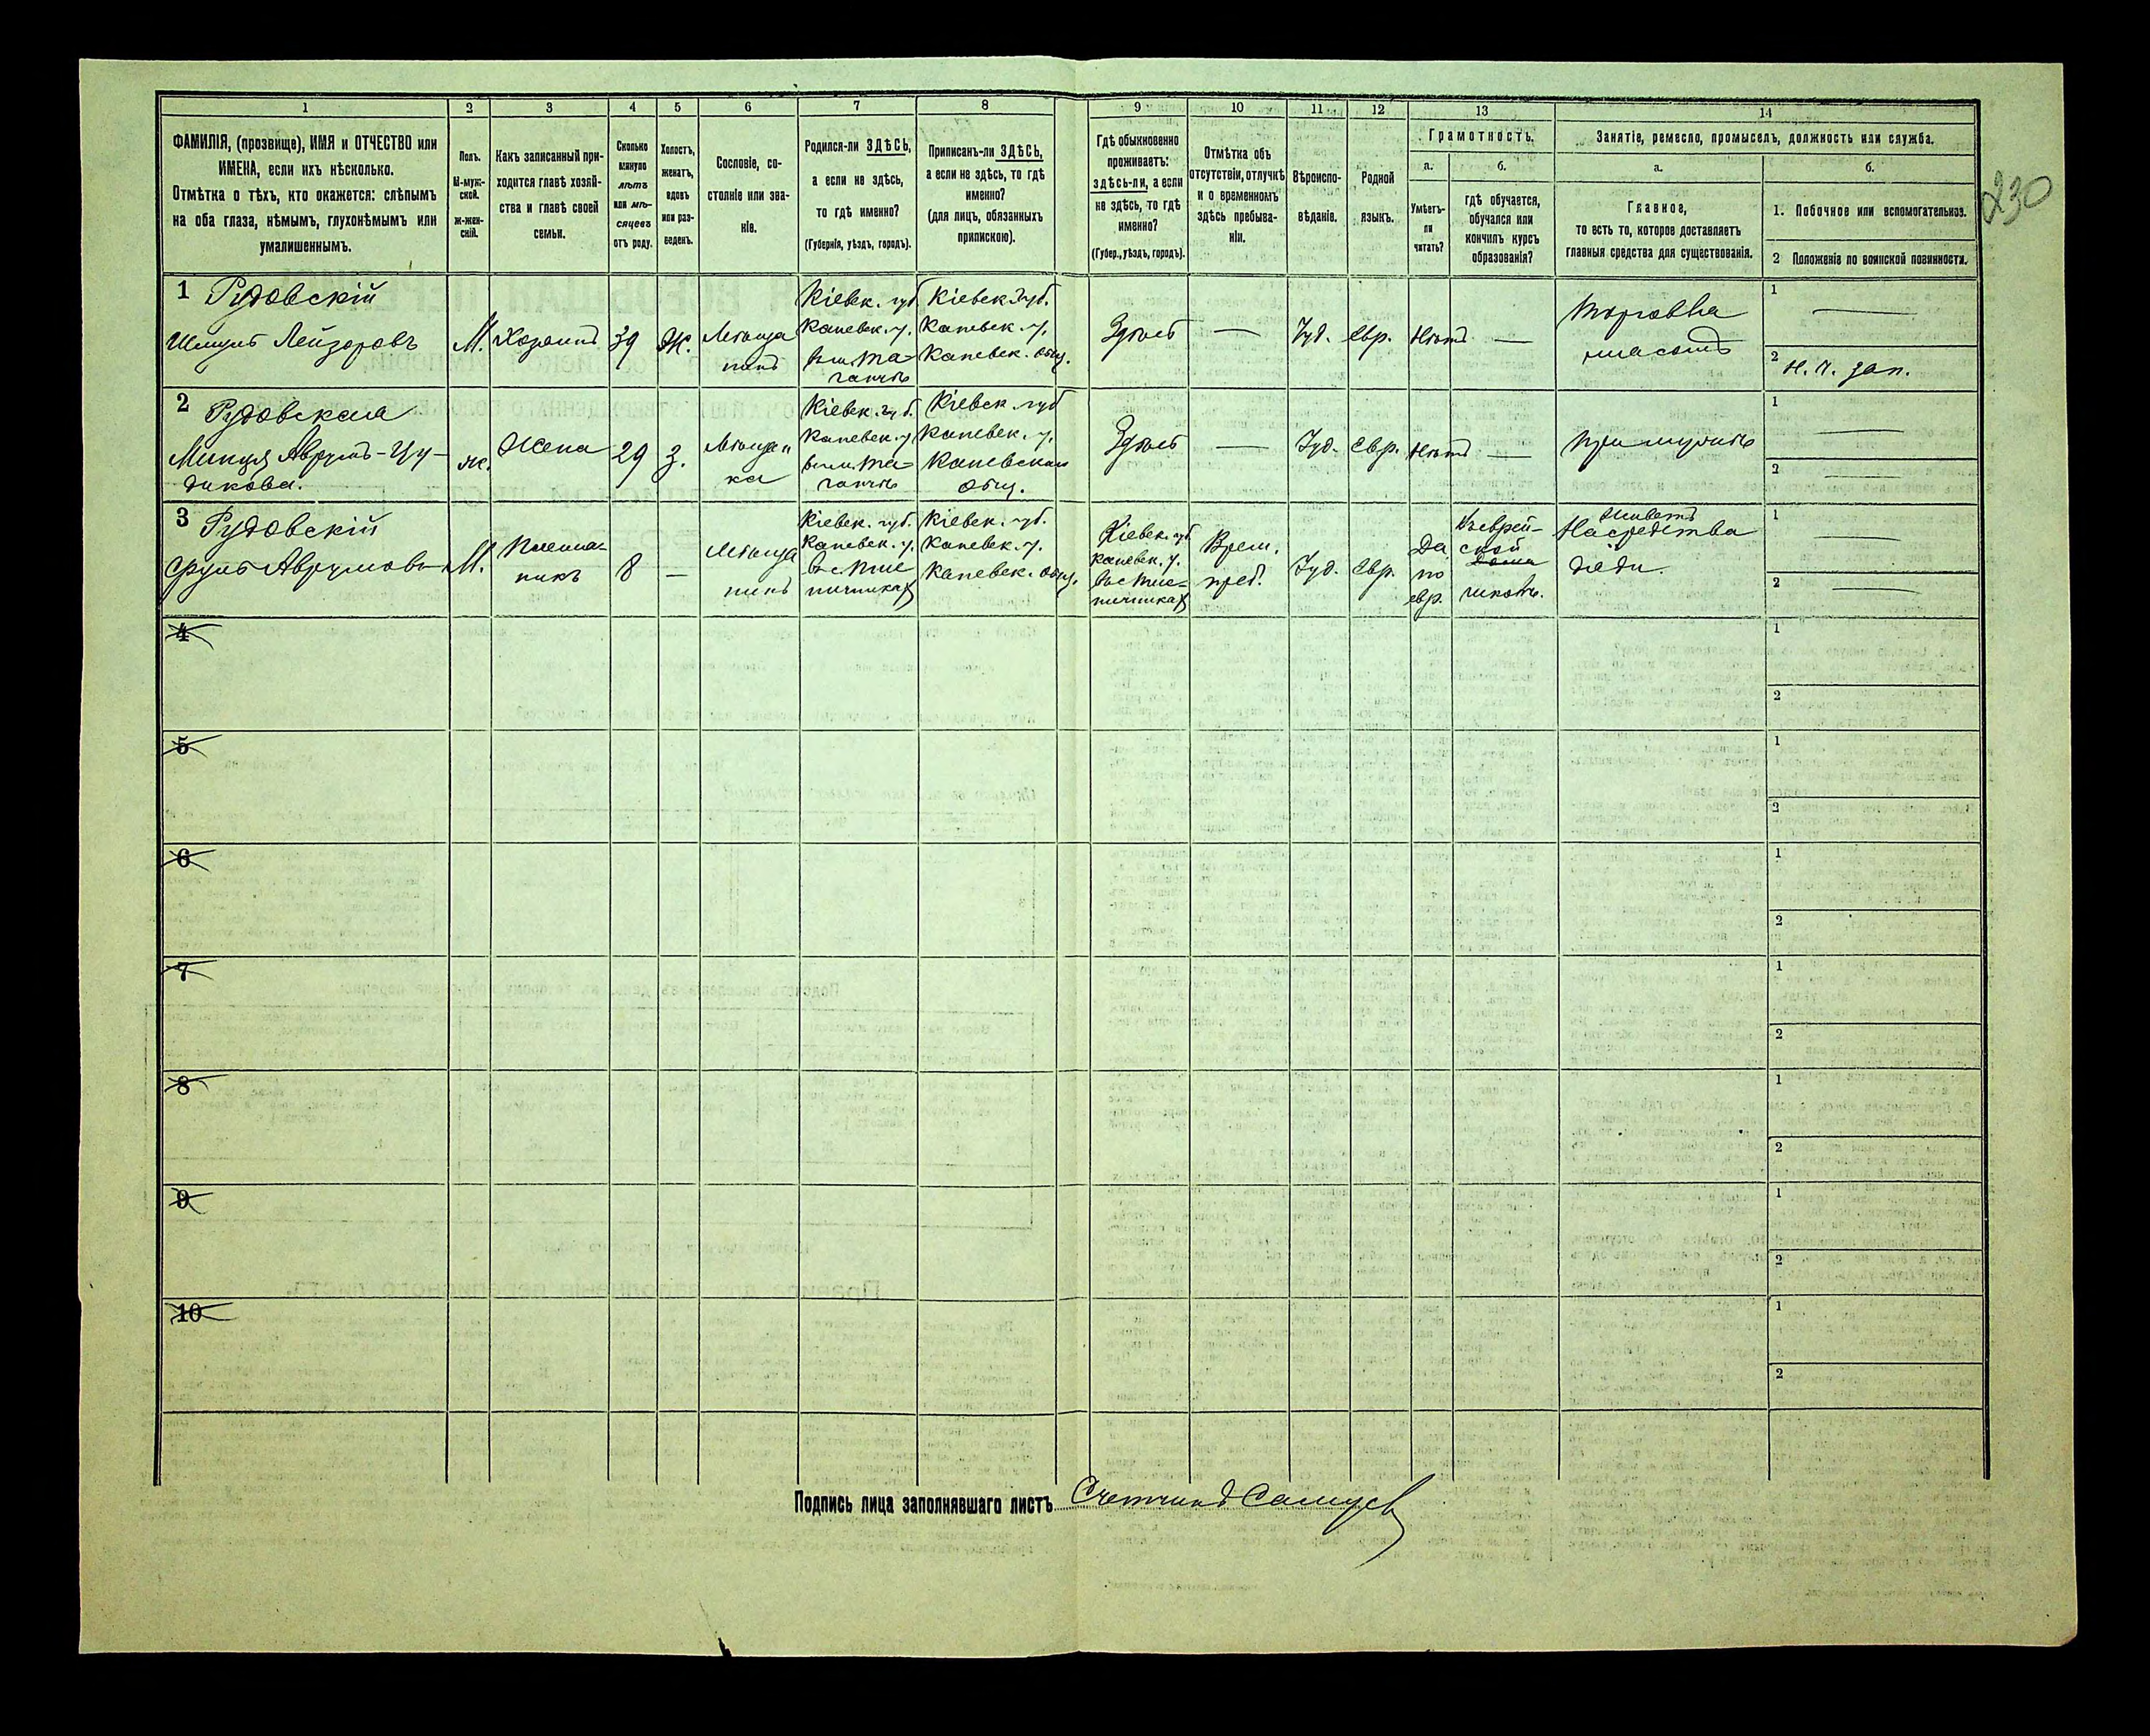 230
1 2 3 4 5 6 7 8 9 10 11 12 13 14
ФАМИЛІЯ, (прозвище), ИМЯ и ОТЧЕСТВО или
ИМЕНА, если ихъ нѣсколько.
Отмѣтка о тѣхъ, кто окажется: слѣпымъ
на оба глаза, нѣмымъ, глухонѣмымъ или
умалишеннымъ.
Полъ.
М-муж-
ской.
ж-жен-
скій.
Какъ записанный при-
ходится главѣ хозяй-
ства и главѣ своей
семьи.
Сколько
минуло
лѣтъ
или мѣ-
сяцевъ
отъ роду.
Холостъ,
женатъ,
вдовъ
или раз-
веденъ.
Сословіе, со-
стояніе или зва-
ніе.
Родился-ли ЗДѢСЬ,
а если не здѣсь,
то гдѣ именно?
(Губернія, уѣздъ, городъ).
Приписанъ-ли ЗДѢСЬ,
а если не здѣсь, то гдѣ
именно?
(для лицъ, обязанныхъ
припискою).
Гдѣ обыкновенно
проживаетъ:
здѣсь-ли, а если
не здѣсь, то гдѣ
именно?
(Губер., уѣздъ, городъ).
Отмѣтка объ
отсутствіи, отлучкѣ
и о временномъ
здѣсь пребыва-
ніи.
Вѣроиспо-
вѣданіе.
Родной
языкъ.
Грамотность.
а.
Умѣетъ-
ли
читать?
б.
гдѣ обучается,
обучался или
кончилъ курсъ
образованія?
Занятіе, ремесло, промыселъ, должность или служба.
а.
Главное,
то есть то, которое доставляетъ
главныя средства для существованія.
б.
1. Побочное или вспомогательное.
2 Положеніе по воинской повинности.
1 Рудовскій
Лейзоровъ
М.
Хозяинъ
39
Ж.
Мѣща
нинъ
Кіевск. губ.
Каневск. у.
Кіевск. губ.
Каневск. у.
Каневск. общ.
Здѣсь
—
Іуд.
Евр.
Нѣтъ
—
Торговля
мясомъ
1 —
2
2 Рудовская
ж.
Жена
29
З.
Мѣщан
ка
Кіевск. губ.
Каневск. у.
Кіевск. губ
Каневск. у.
Каневская
общ.
Здѣсь
—
Іуд.
Евр.
Нѣтъ
—
При мужѣ
1 —
2 —
3 Рудовскій
Аврумовъ
М.
Племян-
никъ
8
—
Мѣща
нинъ
Кіевск. губ.
Каневск. у.
Кіевск. губ.
Каневск. у.
Каневск. общ.
Кіевск. губ.
Каневск. у.
Врем.
преб.
Іуд.
Евр.
Да
по
евр.
Въ еврей-
ской
школѣ.
Живетъ
На средства
дяди.
1 —
2 —
4 1 2
5 1 2
6 1 2
7 1 2
8 1 2
9 1 2
10 1 2
Подпись лица заполнявшаго листъ Счетчикъ